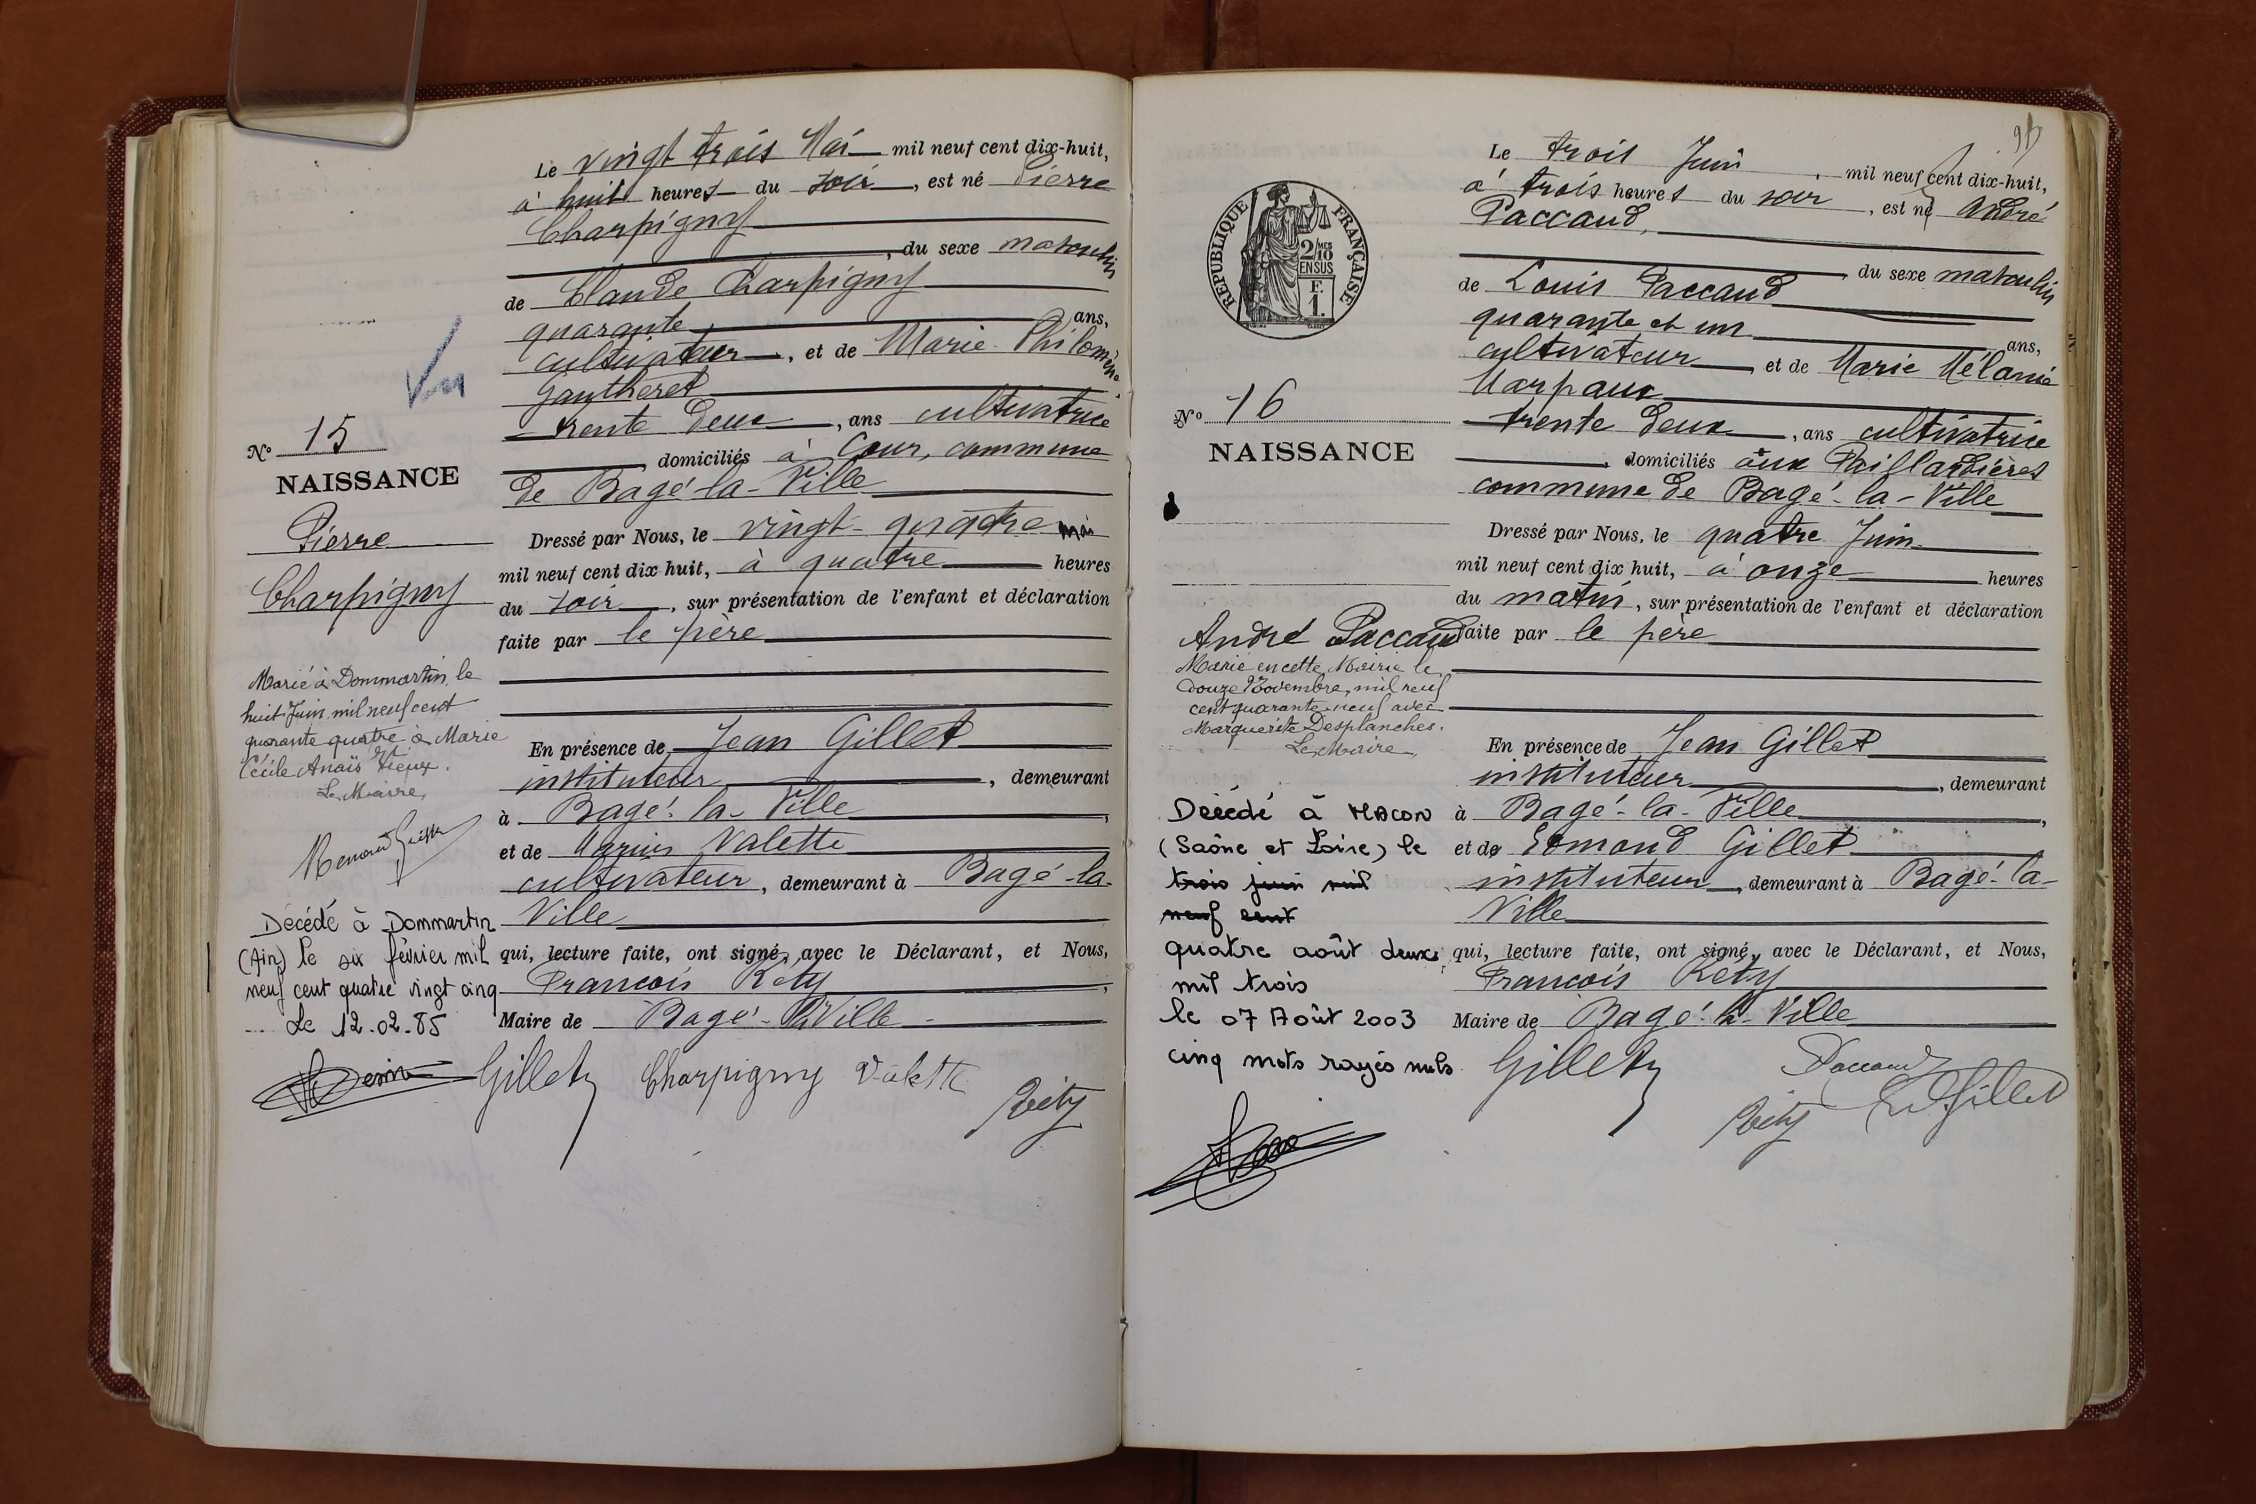 Le vingt trois Mai mil neuf cent dix-huit,
à huit heures du soir, est né Pierre
Charpigny
du sexe masculin
de Claude Charpigny
quarante ans,
cultivateur, et de Marie Philomène
Gautheret
trente deux, ans cultivatrice
domiciliés à Cour, commune
de Bagé-la-Ville
Dressé par Nous, le vingt-quatre mai
mil neuf cent dix huit, à quatre heures
du soir, sur présentation de l'enfant et déclaration
faite par le père
En présence de Jean Gillet
instituteur, demeurant
à Bagé-la-Ville,
et de Marius Valette
cultivateur, demeurant à Bagé-la-
Ville
qui, lecture faite, ont signé, avec le Déclarant, et Nous,
François Réty,
Maire de Bagé-la-Ville
Gillet Charpigny Valette
Réty
Vu
No 15
NAISSANCE
Pierre
Charpigny
Marié à Dommartin, le
huit Juin mil neuf cent
quarante quatre à Marie
Cécile Anaïs Vieux.
Le Maire,
Décédé à Dommartin
(Ain) le six février mil
neuf cent quatre vingt cinq
Le 12-02-85
Le trois Juin, mil neuf cent dix-huit,
à trois heures du soir, est né André
Paccaud,
du sexe masculin
de Louis Paccaud
quarante et un ans,
cultivateur, et de Marie Mélanie
Marpaux
trente deux, ans cultivatrice
domiciliés aux Paillardières
commune de Bagé-la-Ville
Dressé par Nous, le quatre Juin
mil neuf cent dix huit, à onze heures
du matin, sur présentation de l'enfant et déclaration
faite par le père
En présence de Jean Gillet
instituteur, demeurant
à Bagé-la-Ville,
et de Edmond Gillet
instituteur, demeurant à Bagé-la-
Ville
qui, lecture faite, ont signé, avec le Déclarant, et Nous,
François Réty
Maire de Bagé-la-Ville
Gillet Paccaud
Réty Ed. Gillet
RÉPUBLIQUE FRANÇAISE
2/10 MES
EN SUS
F.
1.
No 16
NAISSANCE
André Paccaud
Marié en cette Mairie le
douze Novembre, mil neuf
cent quarante-neuf avec
Marguerite Desplanches.
Le Maire,
Décédé à MACON
(Saône et Loire) le
trois juin mil
neuf cent
quatre août deux
mil trois
le 07 Août 2003
cinq mots rayés nuls